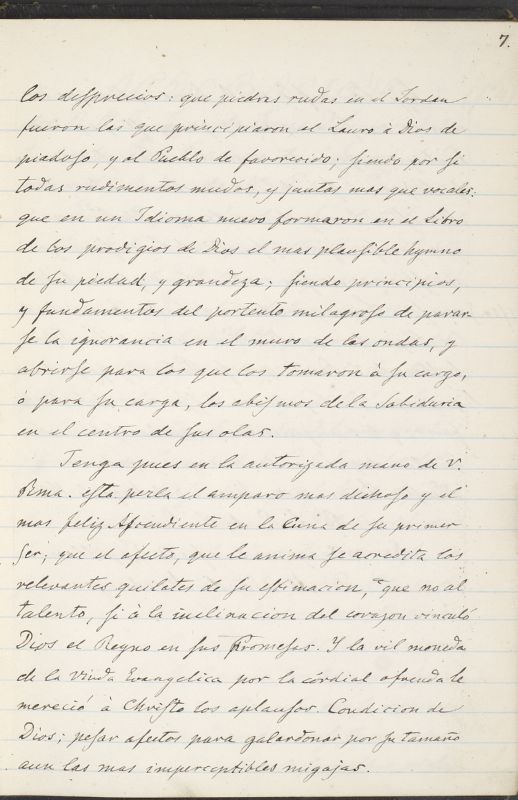 7.
los desprecios: que piedras rudas en el Jordan
fueron las que principiaron el Lauro à Dios de
piadoso, y al Pueblo de favorecido; siendo por si
todas rudimentos mudos, y juntas mas que vocales:
que en un Idioma nuevo formaron en el Libro
de los prodigios de Dios el mas plausible hymno
de su piedad, y grandeza; siendo principios,
y fundamentos del portento milagroso de parar-
se la ignorancia en el muro de las ondas, y
abrirse para los que los tomaron à su cargo,
ó para su carga, los abismos de la Sabiduria
en el centro de sus olas.
Tenga pues en la autorizada mano de V.
Rma. esta perla el amparo mas dichoso y el
mas feliz Ascendiente en la Cuna de su primer
ser; que el afecto, que le anima se acredita los
relevantes quilates de su estimacion, que no al
talento, si à la inclinacion del corazon vinculó
Dios el Reyno en sus Promesas. Y la vil moneda
de la Viuda Evangelica por la córdial ofrenda le
mereció à Christo los aplausos. Condicion de
Dios; pesar afectos para galardonar por su tamaño
aun las mas imperceptibles migajas.